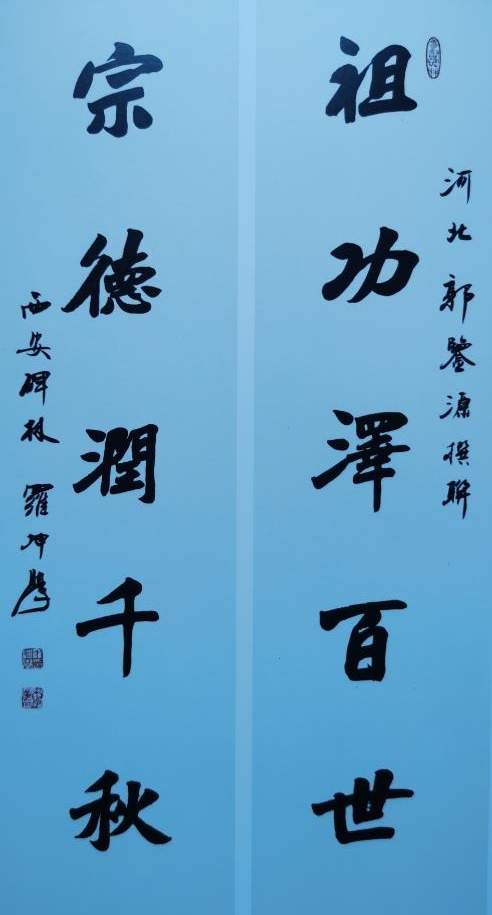 河北郭鑒源撰聯
祖功澤百世
宗德潤千秋
西安碑林 羅坤學